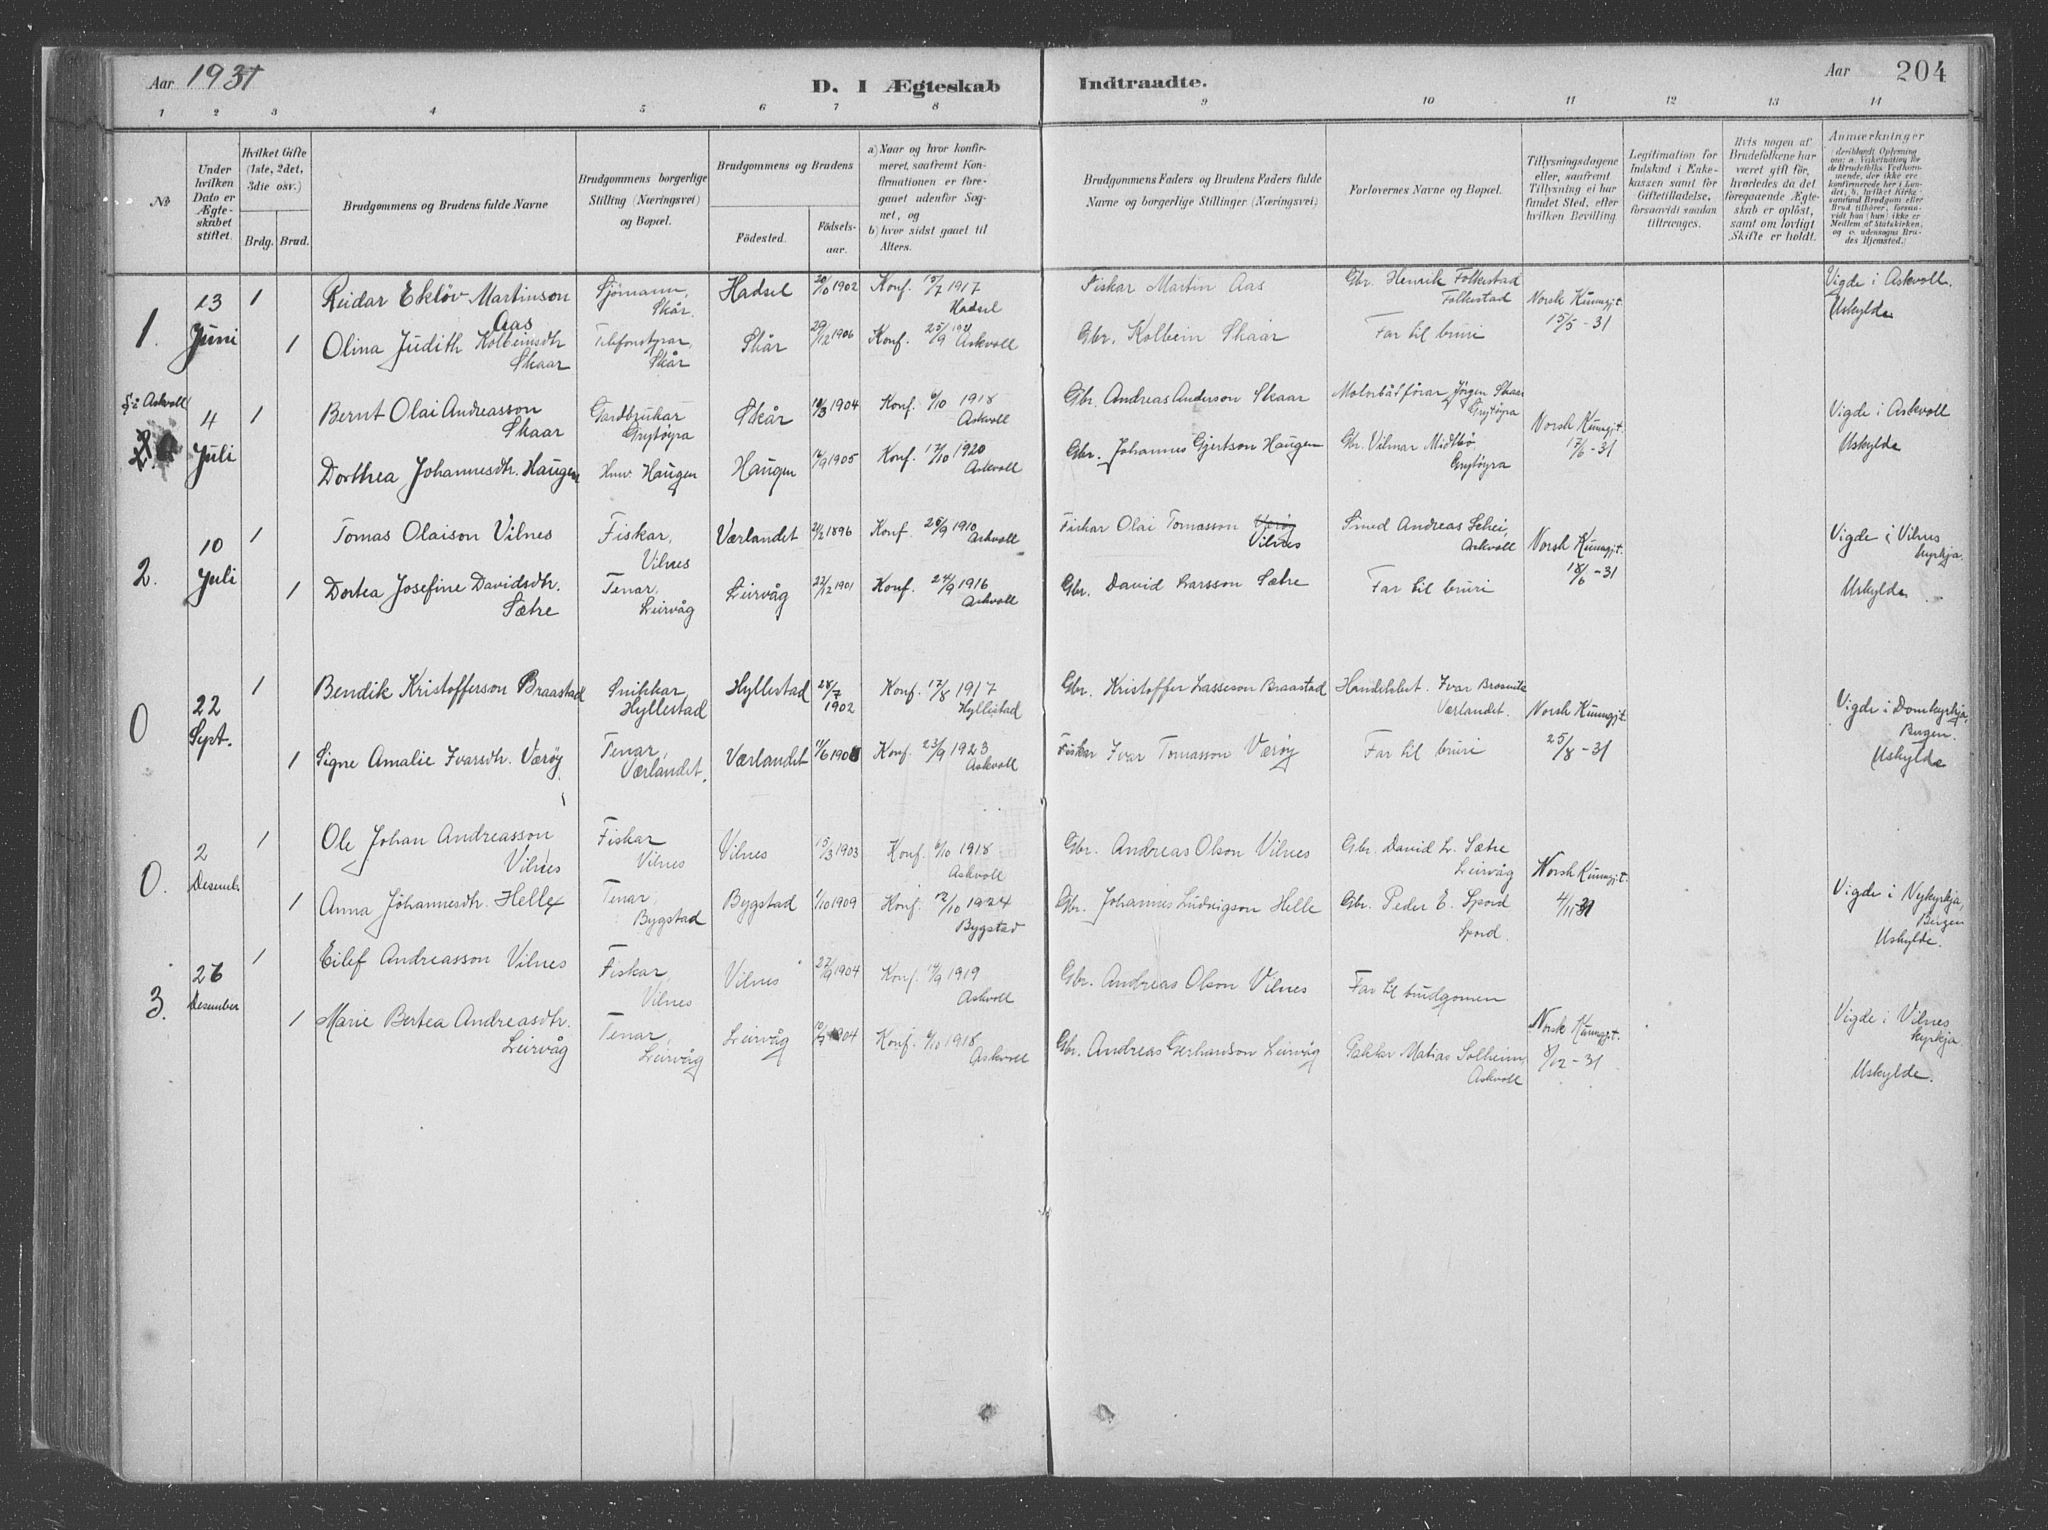 Aar 1931 D. I Ægteskab Indtraadte. Aar 204
1 2 3 4 5 6 7 8 9 10 11 12 13 14
No
Under hvilken Dato er Ægteskabet stiftet.
Hvilket Gifte (1ste, 2det, 3die osv.)
Brdg. Brud.
Brudgommens og Brudens fulde Navne
Brudgommens borgerlige Stilling (Næringsvei) og Bopæl.
Brudgommens og Brudens
Fødested.
Fødselsaar.
a) Naar og hvor konfirmeret, saafremt Konfirmationen er foregaaet udenfor Sognet, og
b) hvor sidst gaaet til Alters.
Brudgommens Faders og Brudens Faders fulde Navne og borgerlige Stillinger (Næringsvei)
Forlovernes Navne og Bopæl.
Tillysningsdagene eller, saafremt Tillysning ei har fundet Sted, efter hvilken Bevilling.
Legitimation for Indskud i Enkekassen samt for Giftetilladelse, forsaavidt saadan tiltrænges.
Hvis nogen af Brudefolkene har været gift før, hvorledes da det foregaaende Ægteskab er opløst, samt om lovligt Skifte er holdt.
Anmærkninger
1. 13 Juni
1 Reidar Ekløv Martinson Aas Sjømann, Skår. Hadsel 20/10 1902 Konf. 15/7 1917 Hadsel Fiskar Martin Aas Gbr. Henrik Folkestad Folkestad Norsk Kunngjt. 15/5-31 Vigde i Askvoll. Uskylde
1 Olina Judith Kolbeinsdtr Skaar Telefonstyrar, Skår Skår 29/12 1906 Konf. 25/9 1921 Askvoll Gbr. Kolbein Skaar Far til bruri
§ i Askvoll
4 Juli
1 Bernt Olai Andreasson Skaar Gardbrukar Grytøyra Skår 1904 Konf. 6/10 1918 Askvoll Gbr. Andreas Anderson Skaar Motorbåtførar Jørgen Skaar Grytøyra Norsk Kunngjt. 17/6-31 Vigde i Askvoll Uskylde
Dorthea Johannesdtr. Haugen Haugen Haugen 1905 Konf. 17/10 1920 Askvoll Gbr. Johannes Gjertson Haugen Gbr. Vilmar Midtbø Grytøyra
2. 10 Juli
1 Tomas Olaison Vilnes Fiskar, Vilnes Værlandet 21/2 1896 Konf. 25/9 1910 Askvoll Fiskar Olai Tomasson Værøy Vilnes Smed Andreas Schei, Askvoll Norsk Kunngjt. 18/6-31 Vigde i Vilnes kyrkja. Uskylde
1 Dortea Josefine Davidsdtr. Sætre Tenar, Leirvåg Leirvåg 22/12 1901 Konf. 24/9 1916 Askvoll Gbr. David Larsson Sætre Far til bruri
0 22 Sept.
1 Bendik Kristofferson Braastad Snikkar, Hyllestad Hyllestad 28/7 1902 Konf. 12/8 1917 Hyllestad Gbr. Kristoffer Lasseson Braastad Ivar Værlandet. Norsk Kunngjt. 25/8-31 Vigde i Domkyrkja, Bergen. Uskylde
1 Signe Amalie Ivarsdtr. Værøy Tenar, Værlandet. Værlandet Konf. 23/9 1923 Askvoll Fiskar Ivar Tomasson Værøy Far til bruri
0. 2 Desemb.
1 Ole Johan Andreasson Vilnes Fiskar Vilnes Vilnes 15/3 1903 Konf. 6/10 1918 Askvoll Gbr. Andreas Olson Vilnes Gbr. David L. Sætre Leirvåg Norsk Kunngjt. 4/11-31 Vigde i Nykyrkja, Bergen Uskylde.
1 Anna Johannesdtr. Helle Tenar, Bygstad Bygstad 1/10 1909 Konf. 12/10 1924 Bygstad Gbr. Johannes Ludvigson Helle Gbr. Peder E. Spord Spord.
3. 26 Desember
1 Eilef Andreasson Vilnes Fiskar Vilnes Vilnes 22/9 1904 Konf. 1919 Askvoll Gbr. Andreas Olson Vilnes Far til brudgomen Norsk Kunngjt. 8/12-31 Vigde i Vilnes kyrkja. Uskylde.
1 Marie Bertea Andreasdtr. Leirvåg Tenar, Leirvåg Leirvåg 1904 Konf. 6/10 1918 Askvoll Gbr. Andreas Gerhanson Leirvåg Matias Solheim, Askvoll